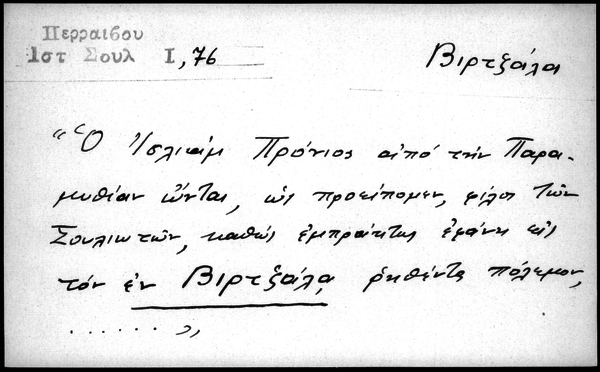 Περραιβου
Ιστ Σουλ Ι, 76
Βιρτζάλα
"Ὁ Ἰσλιὰμ Πρόνιος ἀπό τήν Παρα-
μυθίαν ὤντας, ὡς προείπομεν, φίλος τῶν
Σουλιωτῶν, καθώς ἐμπράκτως ἐφάνη εἰς
τόν ἐν Βιρτζάλα, ῥηθέντα πόλεμον,
. . . . . . "